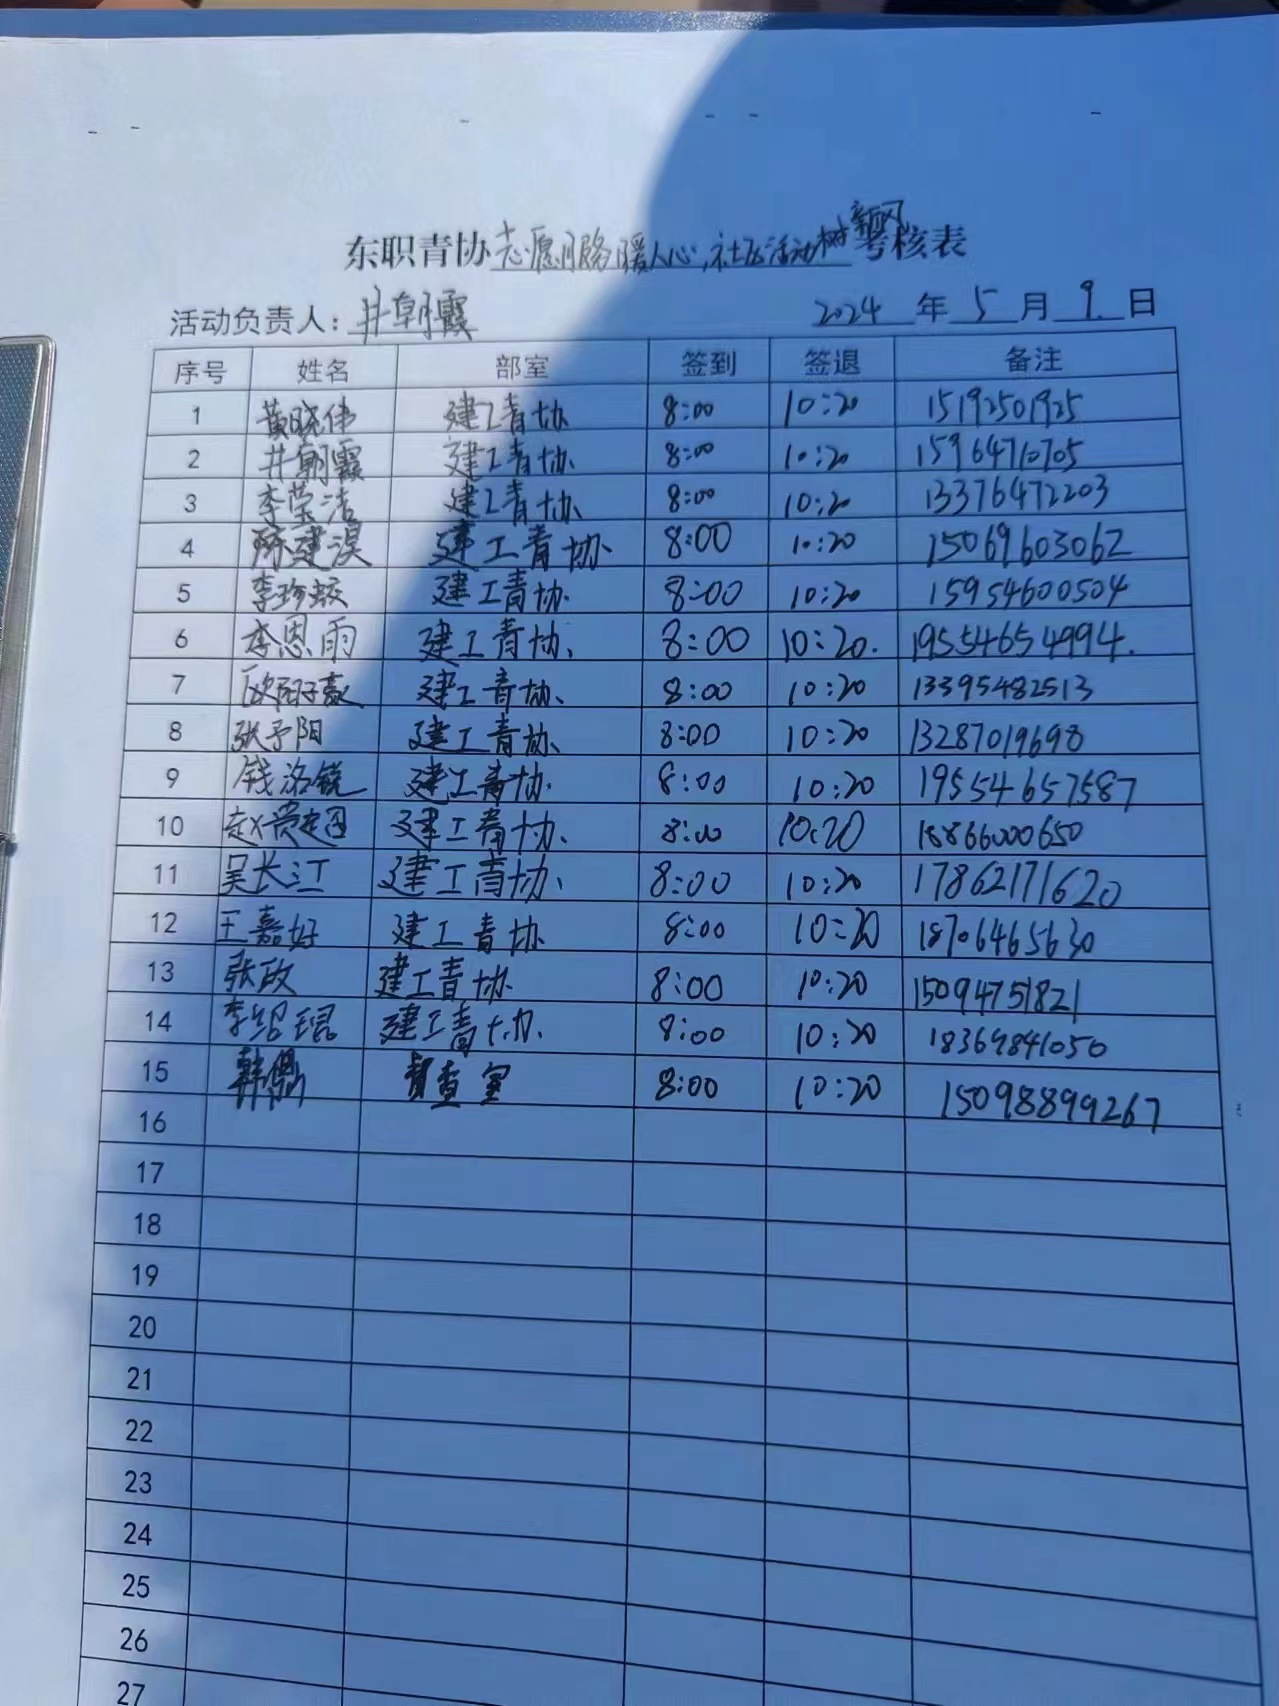 东职青协志愿服务暖人心,社区活动树新风考核表
活动负责人:井朝霞 2024年5月9日
序号 姓名 部室 签到 签退 备注
1 黄晓伟 建工青协 8:00 10:20 15192501925
2 井朝霞 建工青协 8:00 10:20 15964710705
3 李莹洁 建工青协 8:00 10:20 13376472203
4 陈建淏 建工青协 8:00 10:20 15069603062
5 李珍姣 建工青协 8:00 10:20 15954600504
6 李恩雨 建工青协 8:00 10:20. 19554654994.
7 建工青协 8:00 10:20 13395482513
8 张予阳 建工青协 8:00 10:20 13287019698
9 钱洛锐 建工青协 8:00 10:20 19554657587
10 建工青协 8:00 10:20 18866000650
11 吴长江 建工青协 8:00 10:20 17862171620
12 王嘉好 建工青协 8:00 10:20 18706465630
13 张政 建工青协 8:00 10:20 15094751821
14 李绍琨 建工青协 8:00 10:20 18369841050
15 韩 督查室 8:00 10:20 15098899267
16
17
18
19
20
21
22
23
24
25
26
27